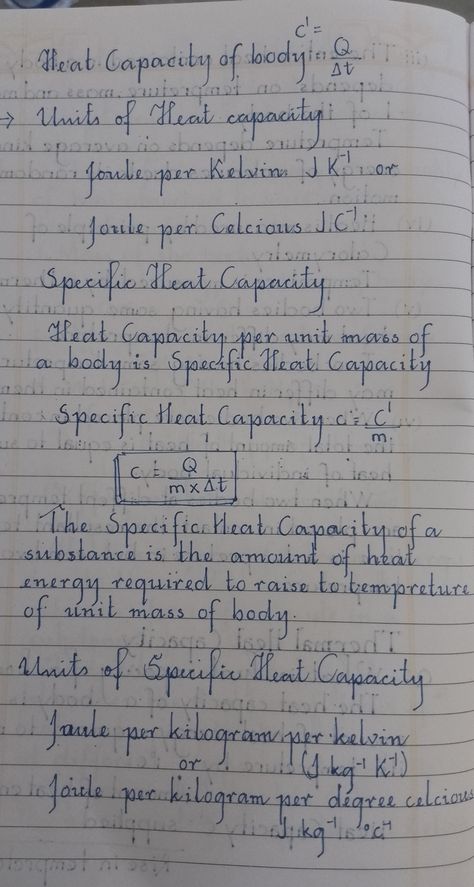 c' =
Heat Capacity of body = Q/Δt
→ Units of Heat capacity
Joule per Kelvin J K⁻¹ or
Joule per Celcious J C⁻¹
Specific Heat Capacity
Heat Capacity per unit mass of
a body is Specific Heat Capacity
Specific Heat Capacity c = c'/m
c = Q/m × Δt
The Specific Heat Capacity of a
substance is the amount of heat
energy required to raise to tempreture
of unit mass of body.
Units of Specific Heat Capacity
Joule per kilogram per kelvin
or (J kg⁻¹ K⁻¹)
Joule per kilogram per degree celcious
J kg⁻¹ °c⁻¹